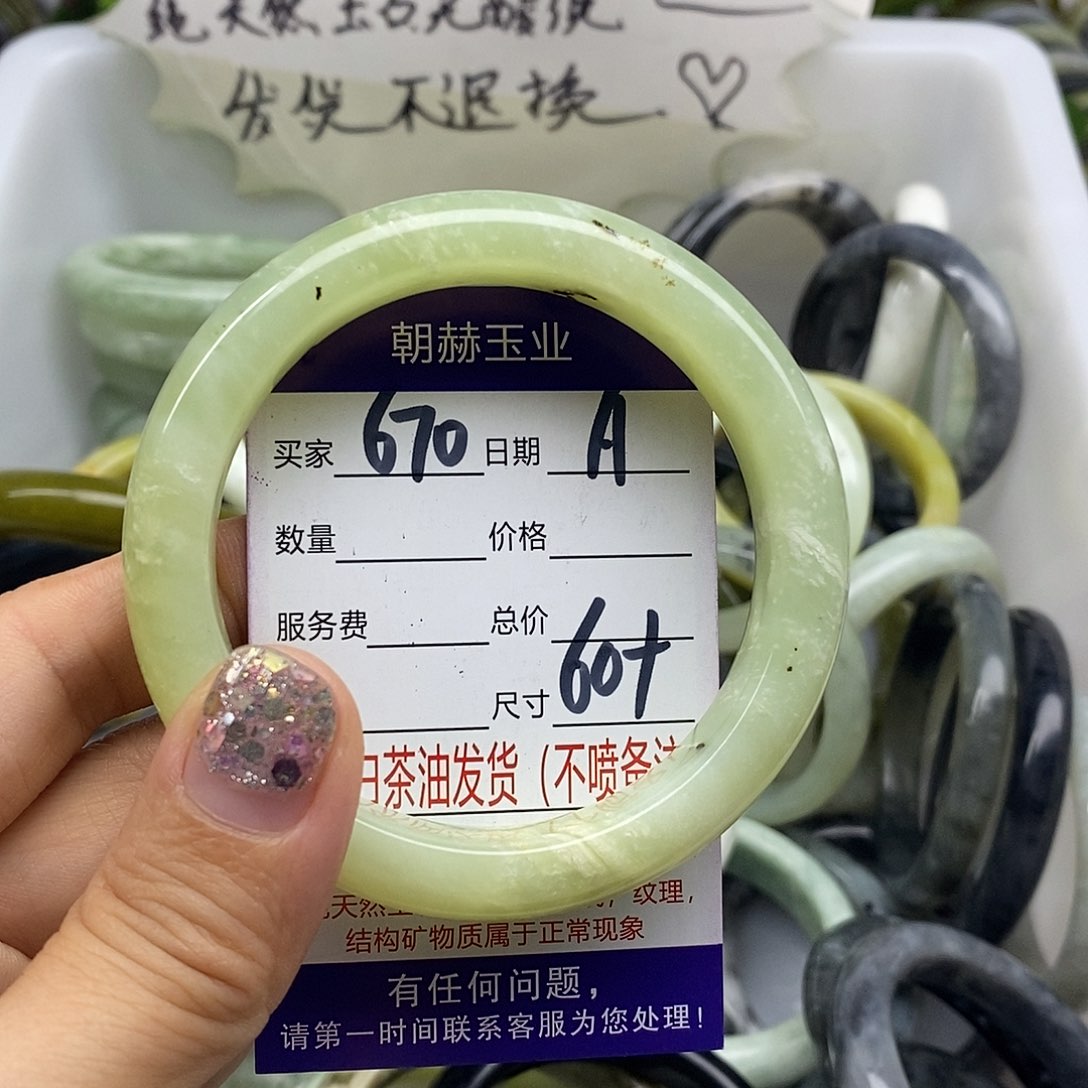 纯天然玉石无酸洗
发货不退换
朝赫玉业
买家 670 日期 A
数量 价格
服务费 总价
尺寸 60+
白茶油发货(不喷备注
天然 纹理,
结构矿物质属于正常现象
有任何问题,
请第一时间联系客服为您处理!